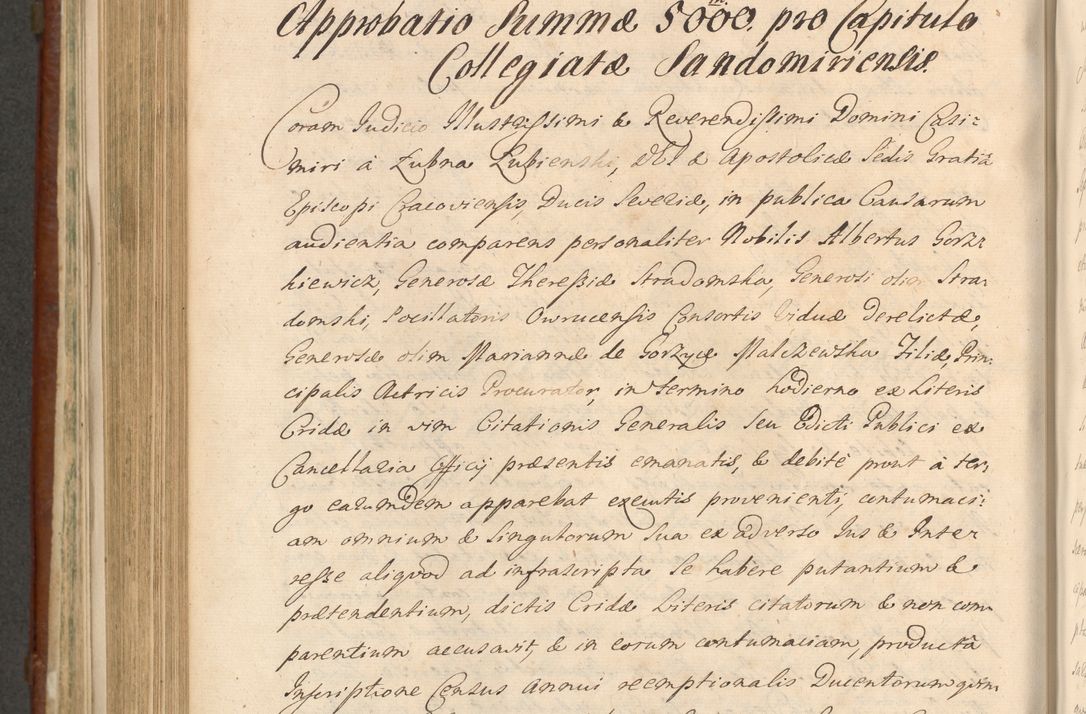 Approbatio Summæ 5000. pro Capitulo
Collegiatæ Sandomiriensis.
Coram Judicio Illustrissimi & Reverendissimi Domini Casi:
miri à Łubna Łubienski, DEI & Apostolicæ Sedis Gratiâ
Episcopi Cracoviensis, Ducis Severiæ, in publica Causarum
audientia comparens personaliter Nobilis Albertus Gorz:
kiewicz, Generosæ Theressiæ Stradomska, Generosi olim Stra:
domski, Pocillatoris Owrucensis Consortis Viduæ derelictæ,
Generosæ olim Mariannæ de Gorzyce Malczewska Filiæ, Prin:
cipalis Actricis Procurator, in termino hodierno ex Literis
Cridæ in vim Citationis Generalis Seu Edicti Publici ex
Cancellaria Officij præsentis emanatis, & debitè prout à ter:
go earumdem apparebat executis provenienti, contumaci:
am omnium & Singulorum Sua ex adverso Jus & Inter
resse aliquod ad infrascripta Se habere putantium &
prætendentium, dictis Cridæ Literis citatorum & non com:
parentium accusavit, & in eorum contumaciam, productâ
Inscriptione Census Annui reemptionalis Ducentorum